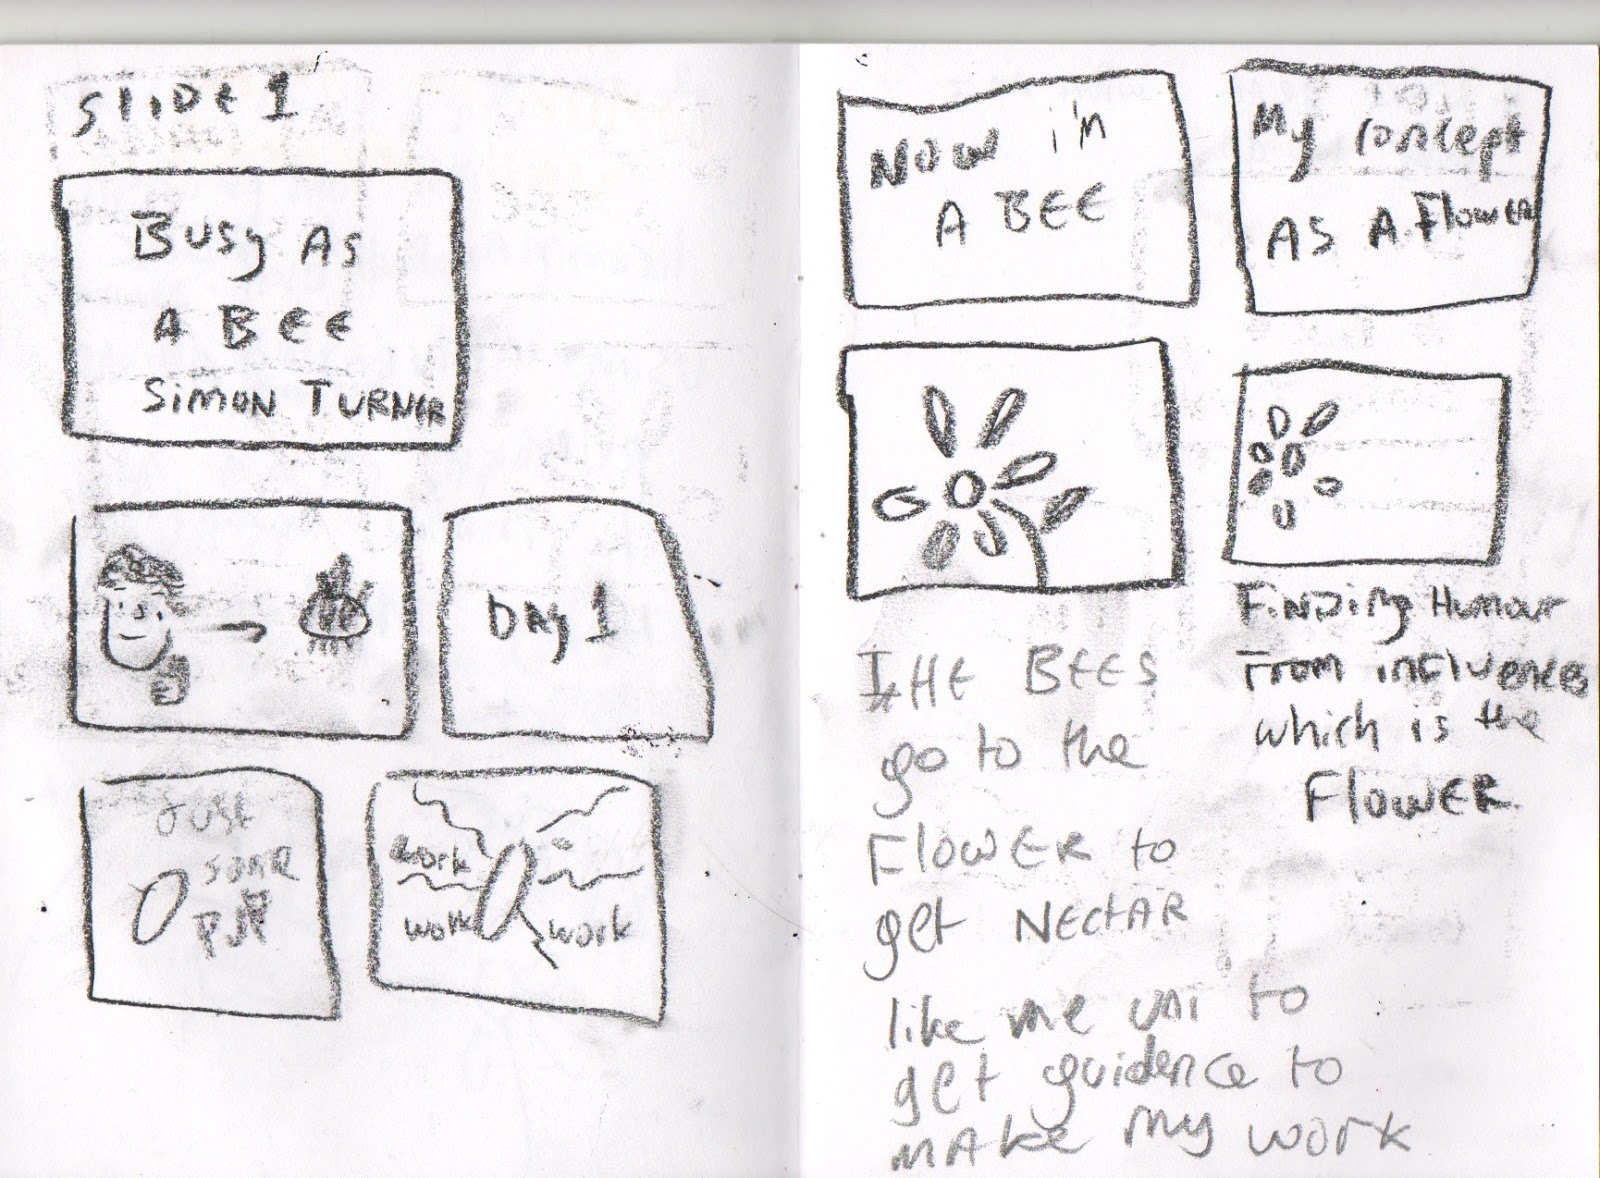 SLIDE 1
BUSY AS
A BEE
SIMON TURNER
DAY 1
JUST
SOME
work
work
work
NOW i'm
A BEE
My concept
AS A FLOWER
THE BEES
go to the
FLOWER to
get NECTAR
like me UNI to
get guidence to
MAKE my work
FINDING HUMOUR
FROM INFLUENCES
which is the
FLOWER